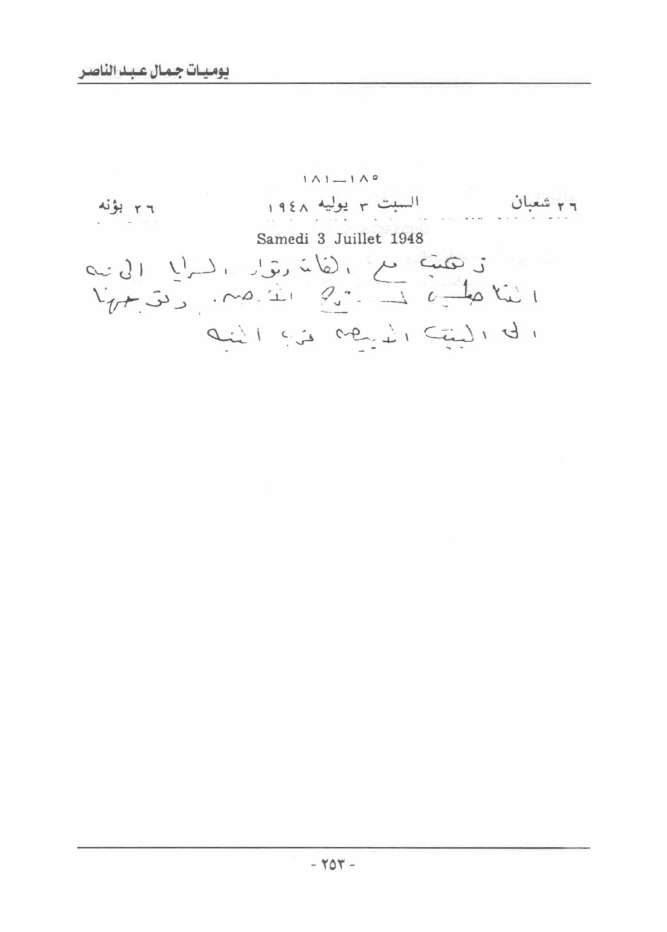 يوميات جمال عبد الناصر
١٨١—١٨٥
٢٦ شعبان السبت ٣ يوليه ١٩٤٨ ٢٦ بؤنه
Samedi 3 Juillet 1948
ذهبت مع القائد وقواد السرايا الى تبه
الأرض. وتوجهنا
الى البيت الأبيض قرب التبه
- ٢٥٣ -